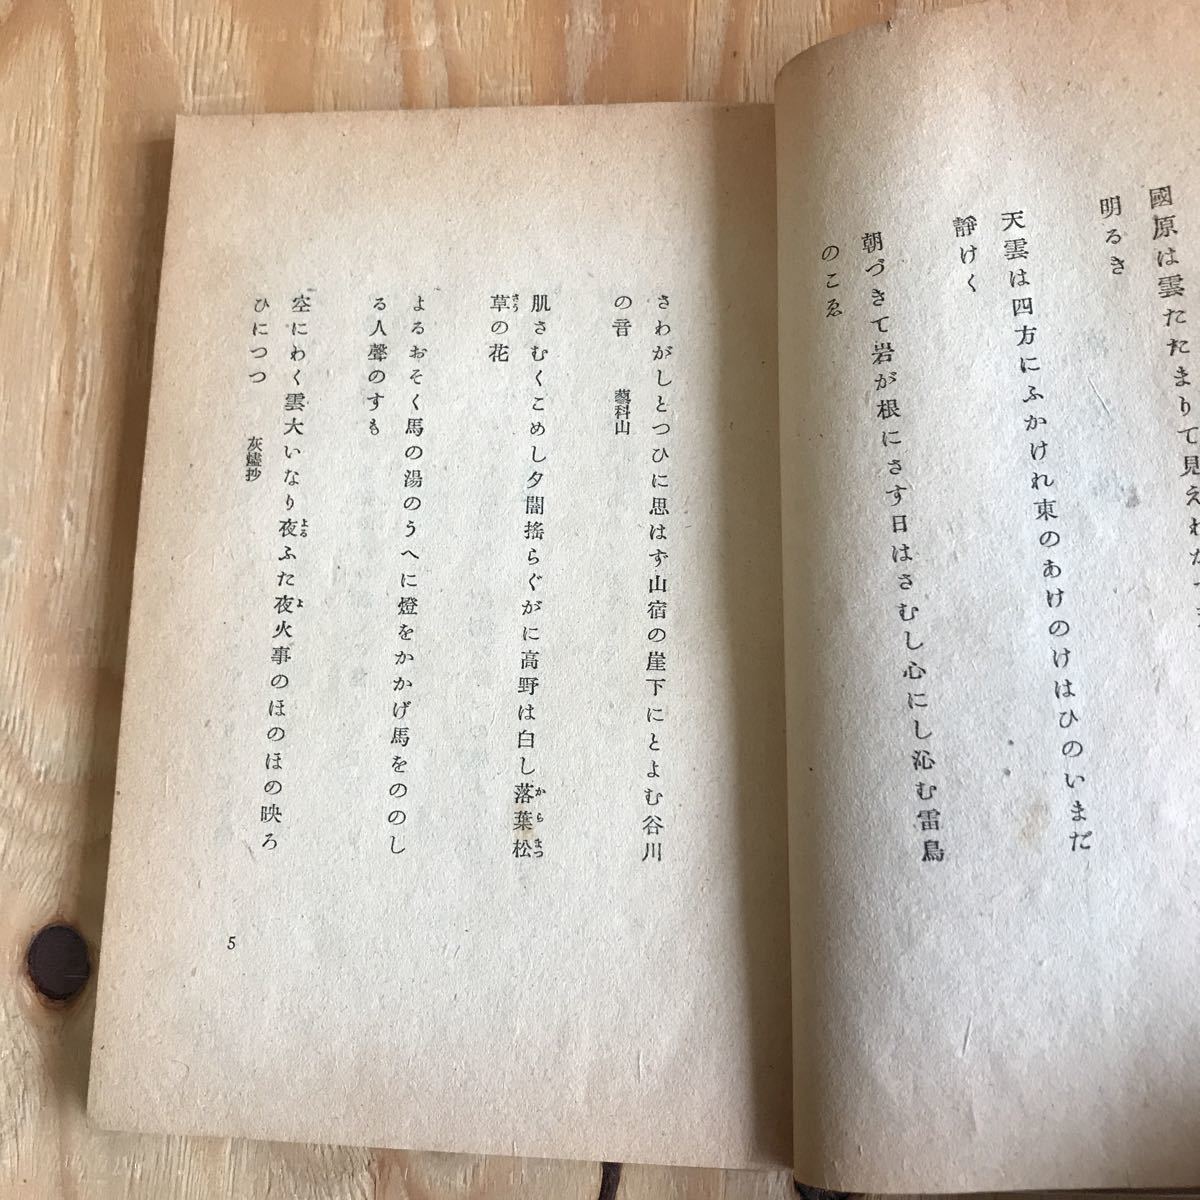 國原は雲たたまりて見えわか
明るき
天雲は四方にふかけれ東のあけのけはひのいまだ
靜けく
朝づきて岩が根にさす日はさむし心にし沁む雷鳥
のこゑ
さわがしとつひに思はず山宿の崖下にとよむ谷川
の音
蓼科山
肌さむくこめし夕闇搖らぐがに高野は白し落葉松
からまつ
草の花
さう
よるおそく馬の湯のうへに燈をかかげ馬をののし
る人聲のすも
空にわく雲大いなり夜ふた夜火事のほのほの映ろ
よる
よ
ひにつつ
灰燼抄
5